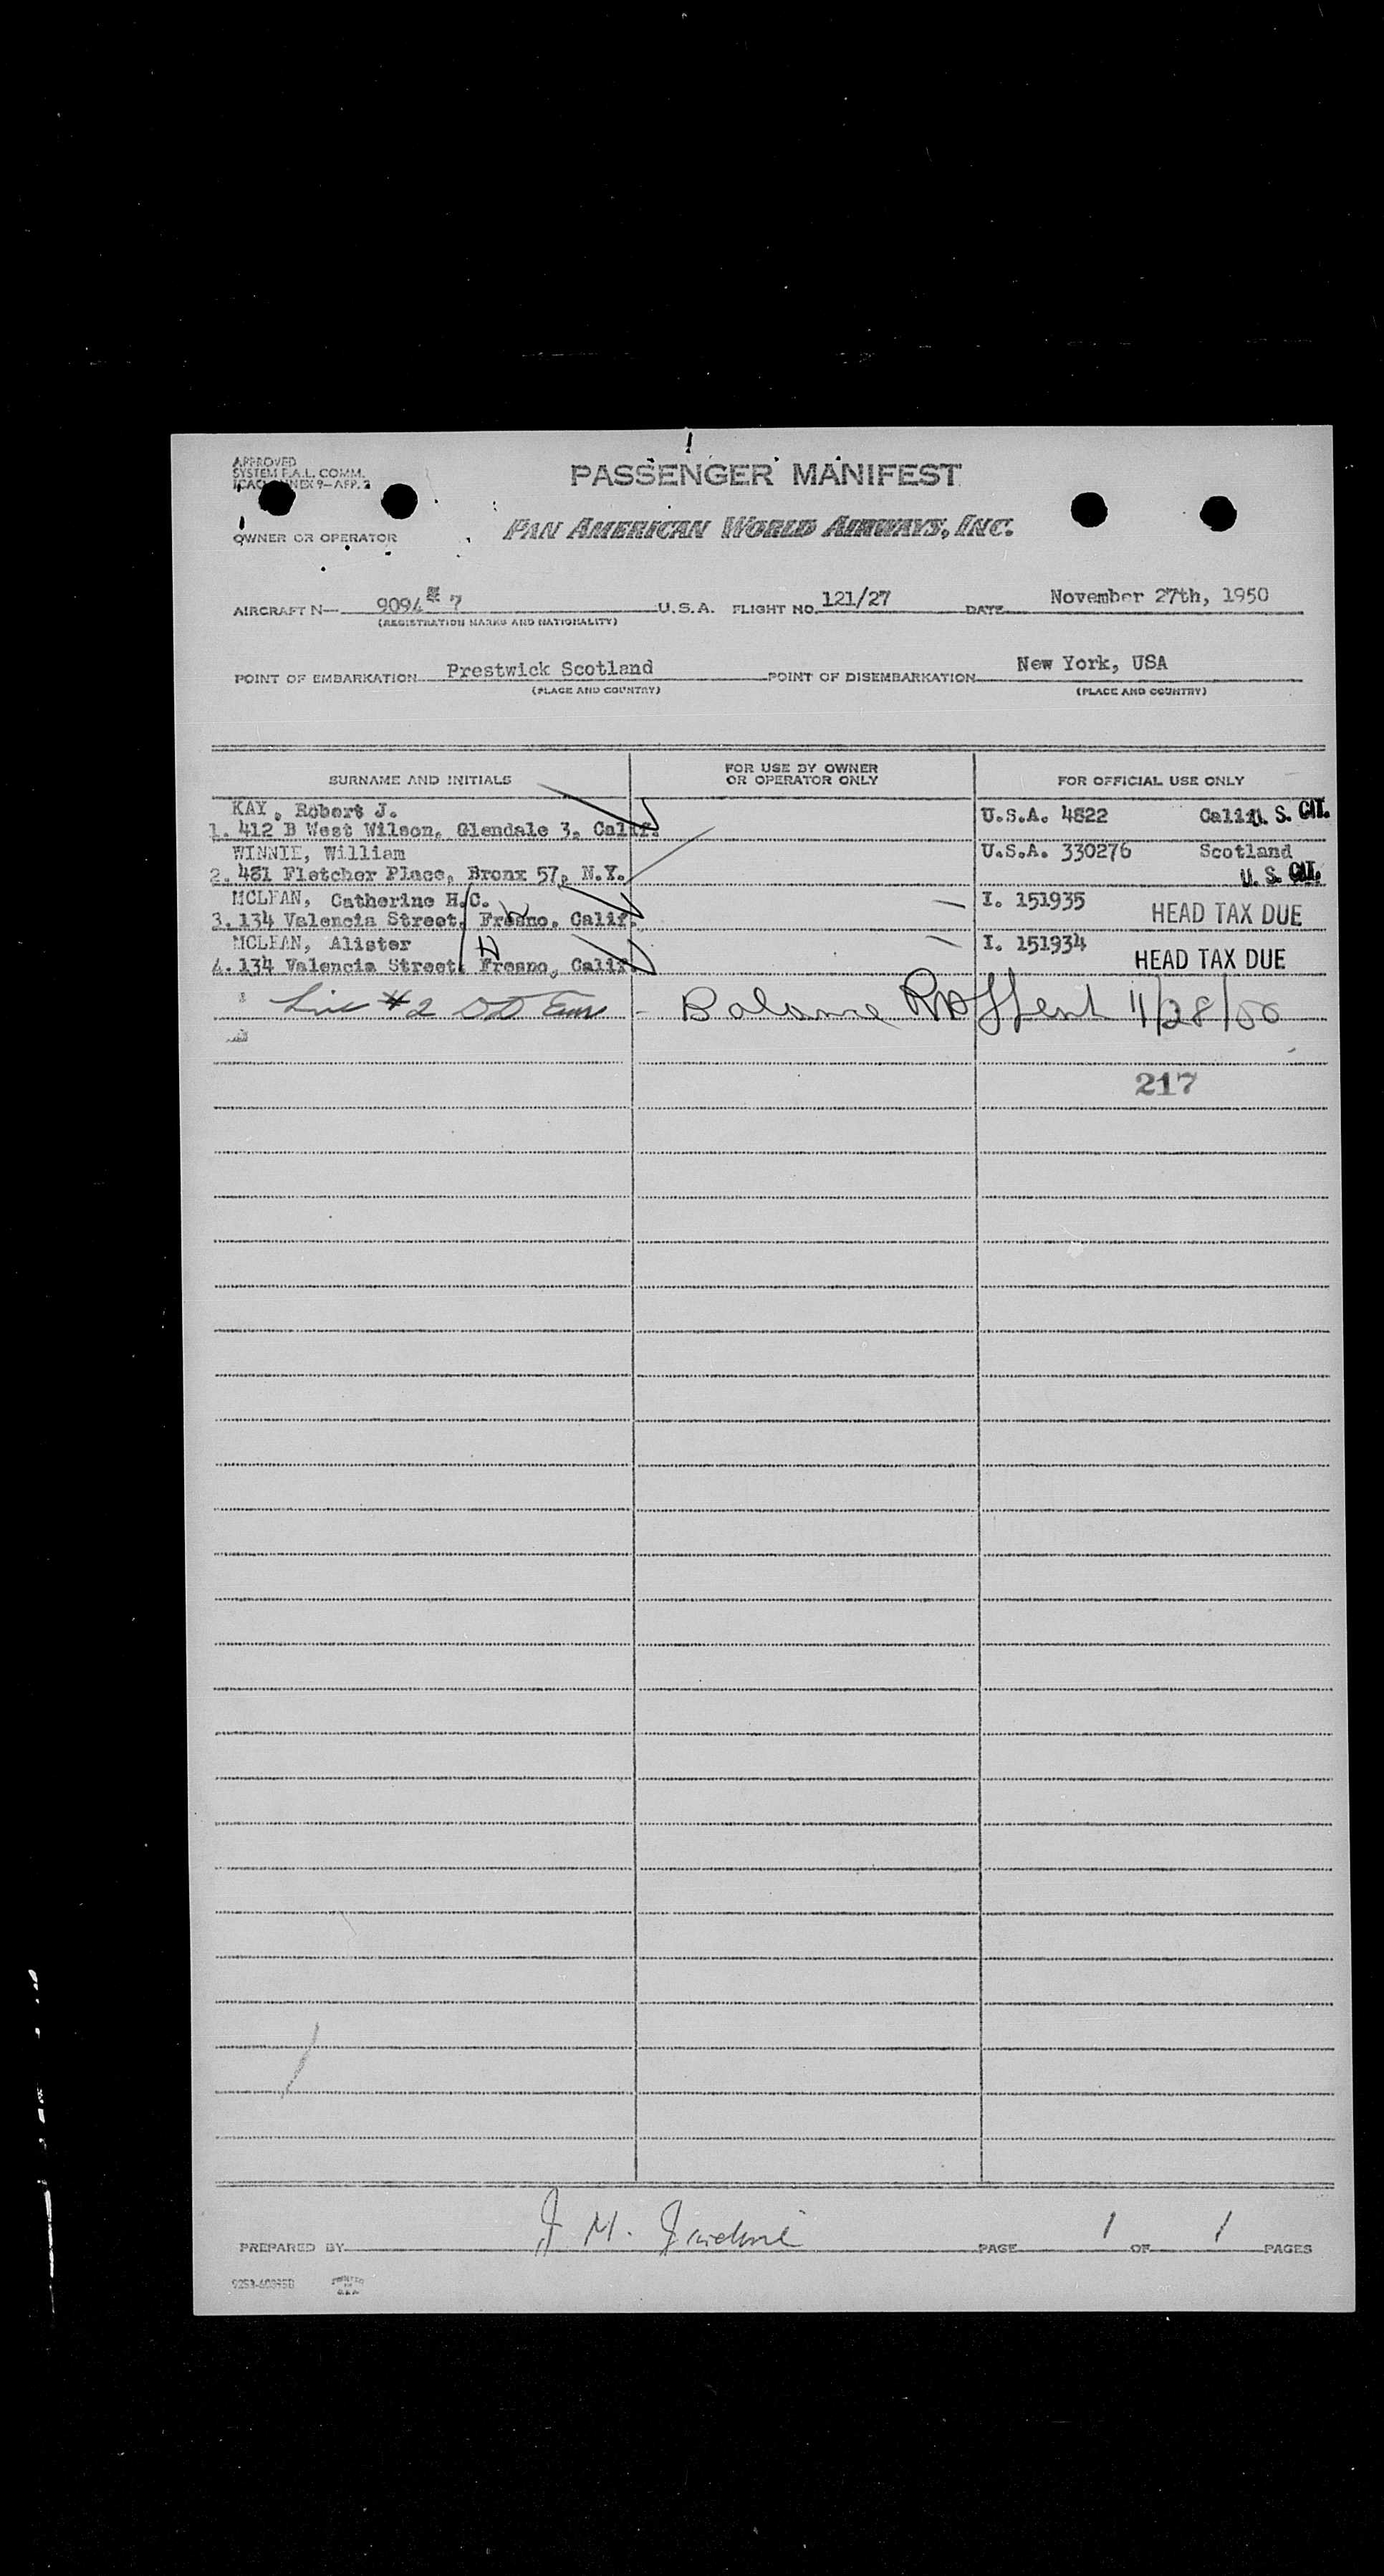 APPROVED
SYSTEM F.A.L. COMM.
ICAO ANNEX 9—APP. 2
PASSENGER MANIFEST
OWNER OR OPERATOR
PAN AMERICAN WORLD AIRWAYS, INC.
AIRCRAFT N— 9094 7 U.S.A. FLIGHT NO. 121/27 DATE November 27th, 1950
(REGISTRATION MARKS AND NATIONALITY)
POINT OF EMBARKATION Prestwick Scotland POINT OF DISEMBARKATION New York, USA
(PLACE AND COUNTRY) (PLACE AND COUNTRY)
SURNAME AND INITIALS FOR USE BY OWNER OR OPERATOR ONLY FOR OFFICIAL USE ONLY
KAY, Robert J. U.S.A. 4822 Calif. U. S. CIT.
1. 412 B West Wilson, Glendale 3, Calif.
WINNIE, William U.S.A. 330276 Scotland
2. 481 Fletcher Place, Bronx 57, N.Y. U. S. CIT.
MCLEAN, Catherine H.C. I. 151935 HEAD TAX DUE
3. 134 Valencia Street, Fresno, Calif.
MCLEAN, Alister I. 151934 HEAD TAX DUE
4. 134 Valencia Street, Fresno, Calif.
Line #2 - Balance 11/28/50
217
PREPARED BY J. M. PAGE 1 OF 1 PAGES
PRINTED
IN
U.S.A.